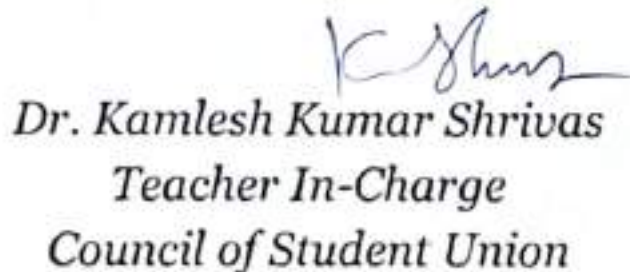 K Shrivas
Dr. Kamlesh Kumar Shrivas
Teacher In-Charge
Council of Student Union